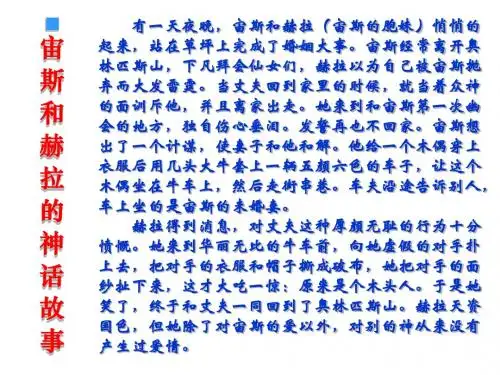 宙斯和赫拉的神话故事
有一天夜晚，宙斯和赫拉（宙斯的胞妹）悄悄的
起来，站在草坪上完成了婚姻大事。宙斯经常离开奥
林匹斯山，下凡拜会仙女们，赫拉以为自己被宙斯抛
弃而大发雷霆。当丈夫回到家里的时候，就当着众神
的面训斥他，并且离家出走。她来到和宙斯第一次幽
会的地方，独自伤心垂泪。发誓再也不回家。宙斯想
出了一个计谋，使妻子和他和解。他给一个木偶穿上
衣服后用几头大牛套上一辆五颜六色的车子，让这个
木偶坐在牛车上，然后走街串巷。车夫沿途告诉别人，
车上坐的是宙斯的未婚妻。
赫拉得到消息，对丈夫这种厚颜无耻的行为十分
愤慨。她来到华丽无比的牛车前，向她虚假的对手扑
上去，把对手的衣服和帽子撕成破布，她把对手的面
纱扯下来，这才大吃一惊：原来是个木头人。于是她
笑了，终于和丈夫一同回到了奥林匹斯山。赫拉天资
国色，但她除了对宙斯的爱以外，对别的神从来没有
产生过爱情。